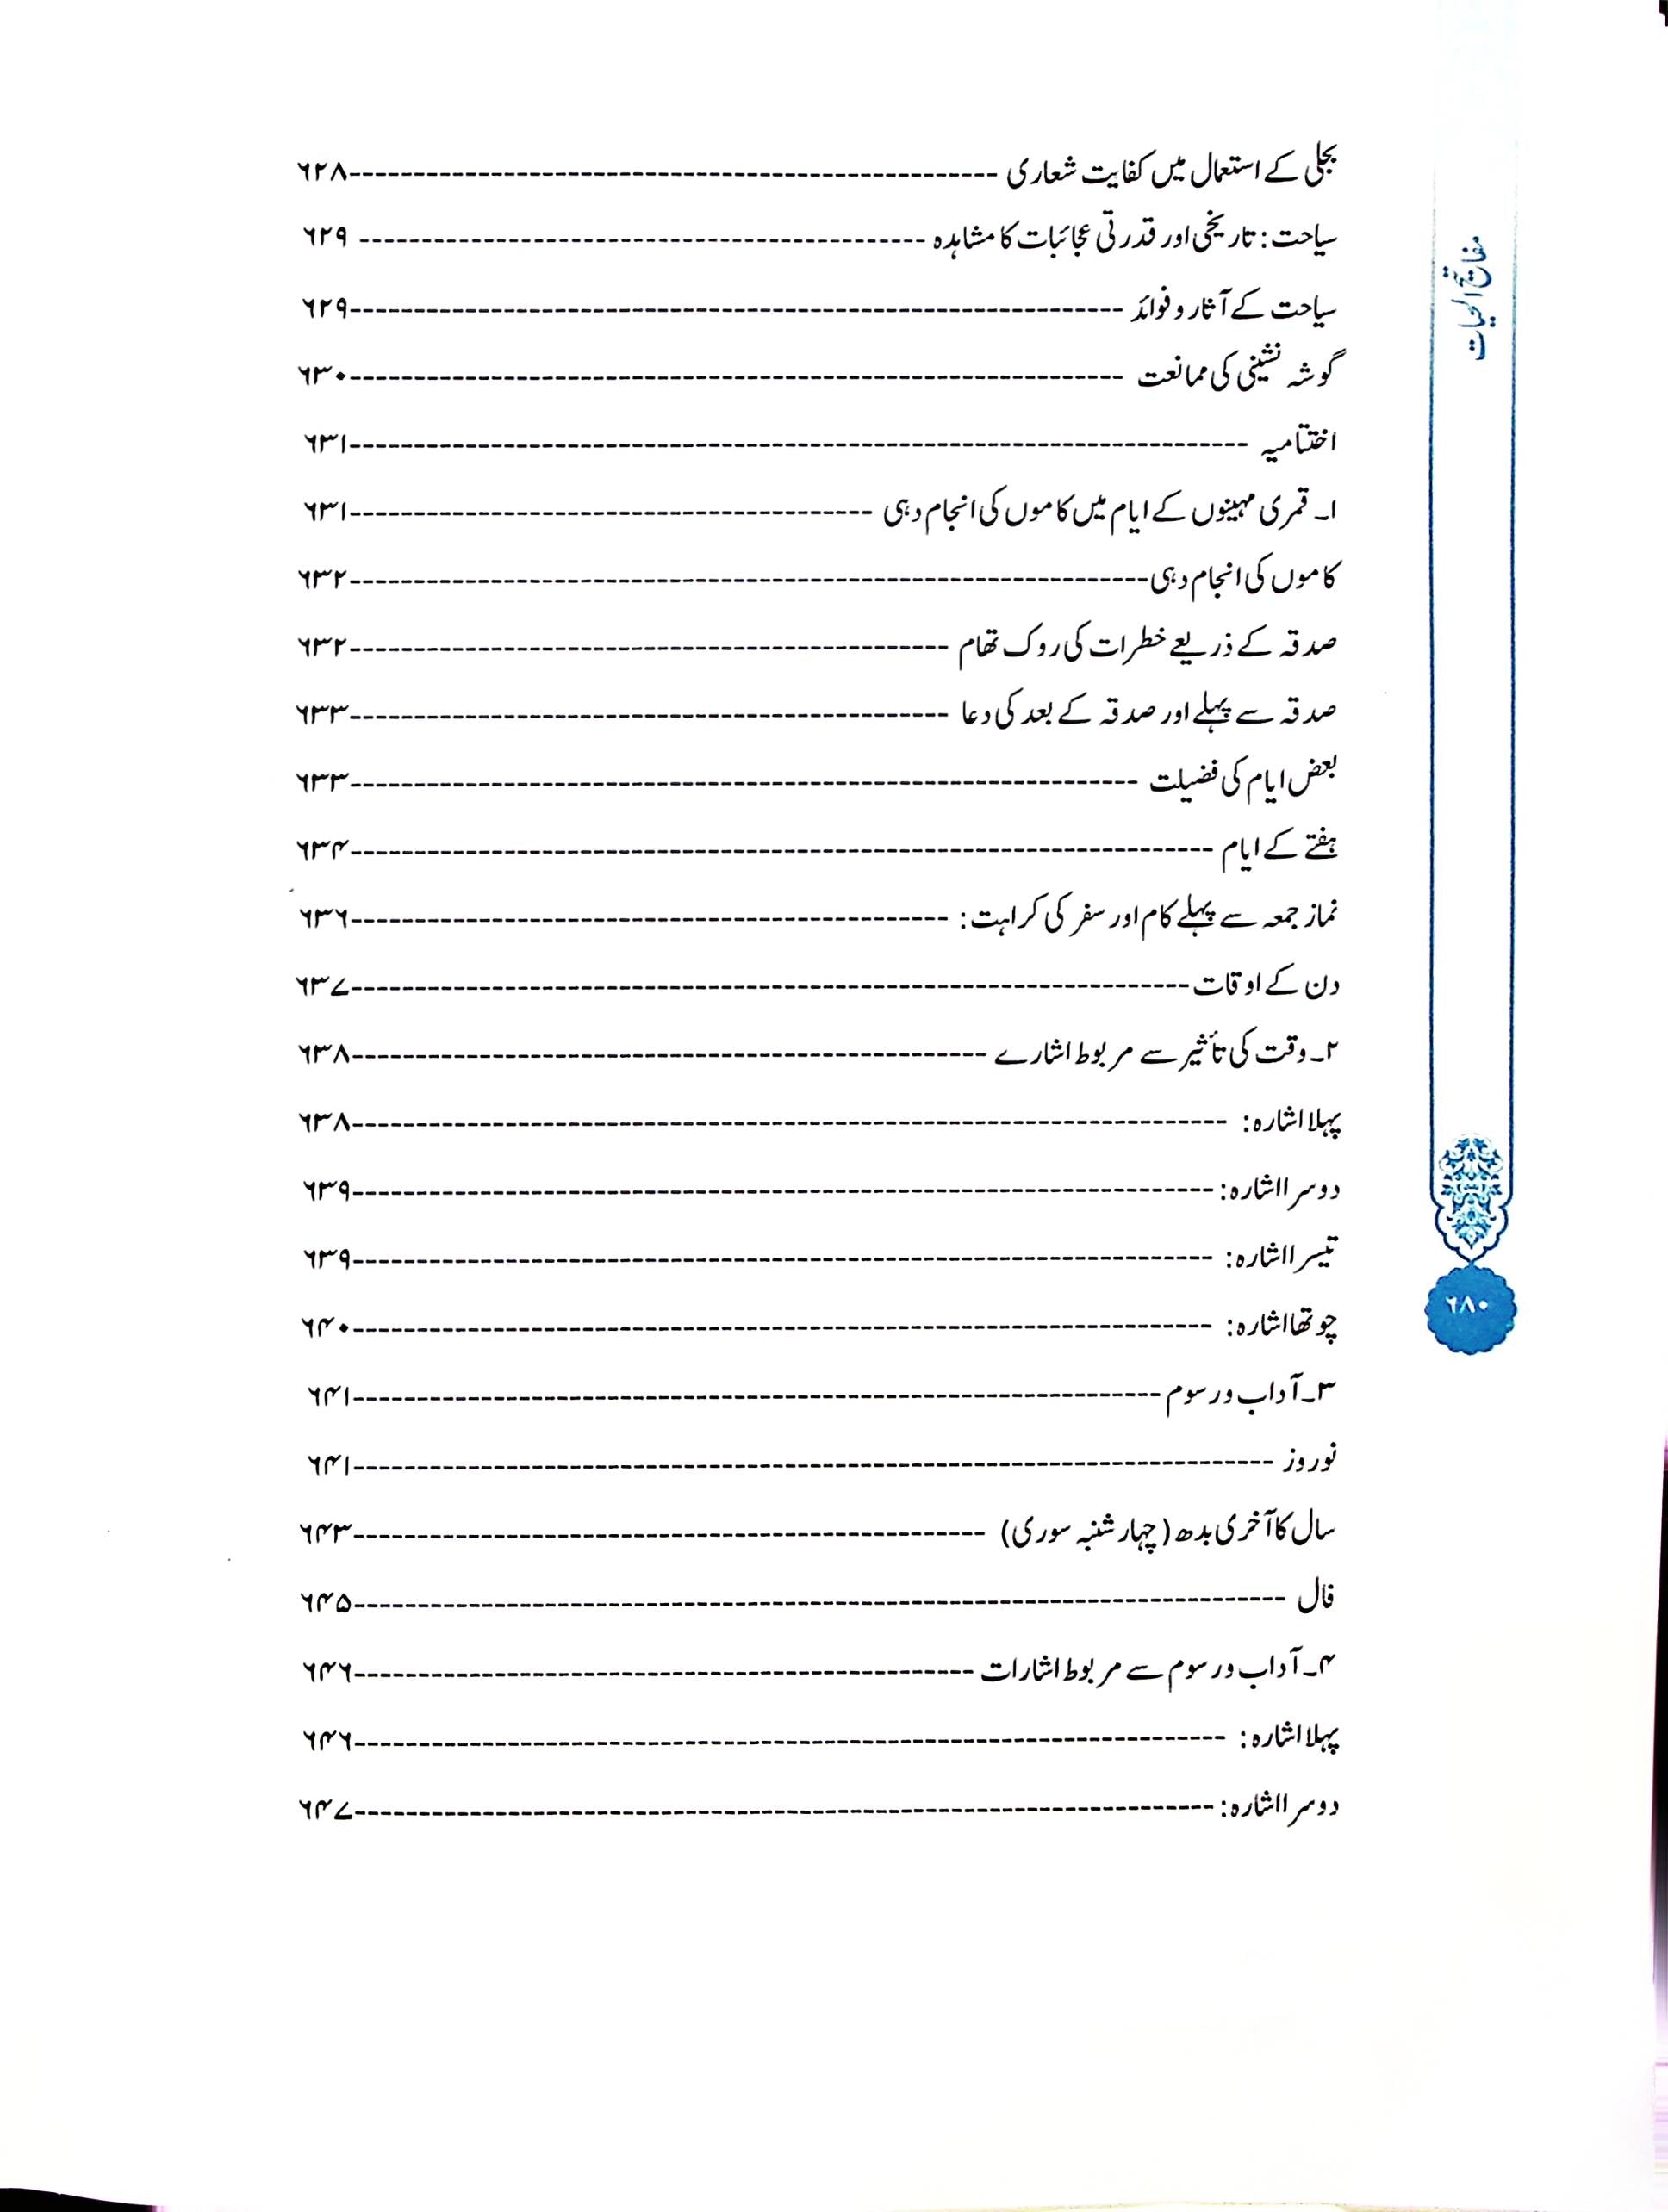 بجلی کے استعمال میں کفایت شعاری --- ۶۲۸
سیاحت: تاریخی اور قدرتی عجائبات کا مشاہدہ --- ۶۲۹
سیاحت کے آثار و فوائد --- ۶۲۹
گوشہ نشینی کی ممانعت --- ۶۳۰
اختتامیہ --- ۶۳۱
۱۔ قمری مہینوں کے ایام میں کاموں کی انجام دہی --- ۶۳۱
کاموں کی انجام دہی --- ۶۳۲
صدقہ کے ذریعے خطرات کی روک تھام --- ۶۳۲
صدقہ سے پہلے اور صدقہ کے بعد کی دعا --- ۶۳۳
بعض ایام کی فضیلت --- ۶۳۳
ہفتے کے ایام --- ۶۳۴
نماز جمعہ سے پہلے کام اور سفر کی کراہت: --- ۶۳۶
دن کے اوقات --- ۶۳۷
۲۔ وقت کی تأثیر سے مربوط اشارے --- ۶۳۸
پہلا اشارہ: --- ۶۳۸
دوسرا اشارہ: --- ۶۳۹
تیسرا اشارہ: --- ۶۳۹
چوتھا اشارہ: --- ۶۴۰
۳۔ آداب و رسوم --- ۶۴۱
نوروز --- ۶۴۱
سال کا آخری بدھ (چہار شنبہ سوری) --- ۶۴۳
فال --- ۶۴۵
۴۔ آداب و رسوم سے مربوط اشارات --- ۶۴۶
پہلا اشارہ: --- ۶۴۶
دوسرا اشارہ: --- ۶۴۷
مفاتیح الحیات
۶۸۰